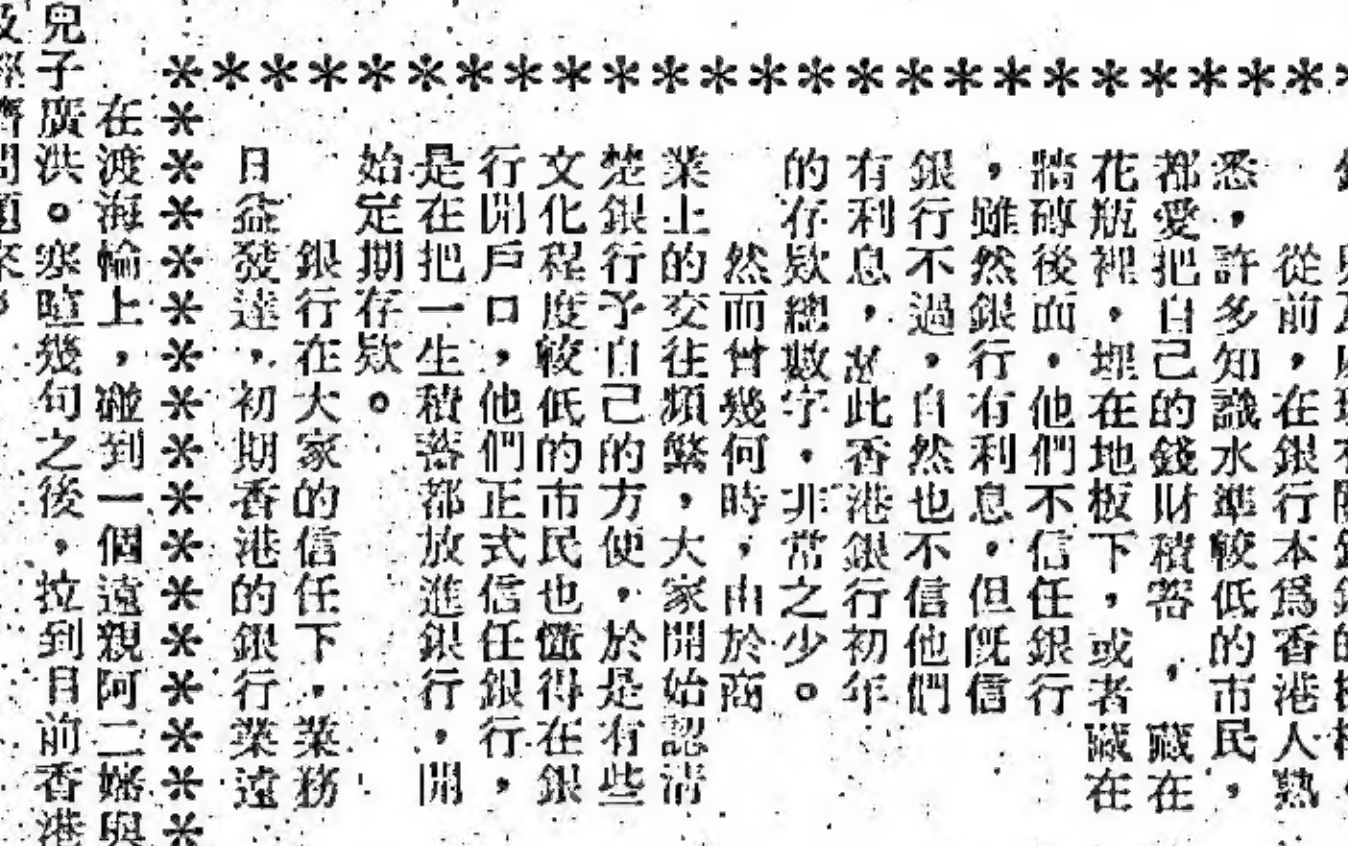 從前，在銀行本爲香港人熟
悉，許多知識水準較低的市民，
都愛把自己的錢財積蓄，藏在
花瓶裡，埋在地板下，或者藏在
牆磚後面，他們不信任銀行
，雖然銀行有利息，但既信
銀行不過，自然也不信他們
有利息，故此香港銀行初年
的存欵總數字，非常之少。
然而曾幾何時，由於商
業上的交往頻繁，大家開始認清
楚銀行予自己的方便，於是有些
文化程度較低的市民也懂得在銀
行開戶口，他們正式信任銀行，
是在把一生積蓄都放進銀行，開
始定期存欵。
銀行在大家的信任下，業務
日益發達，初期香港的銀行業遠
在渡海輪上，碰到一個遠親阿二嬸與
兒子廣洪。寒暄幾句之後，拉到目前香港
經濟問題來，